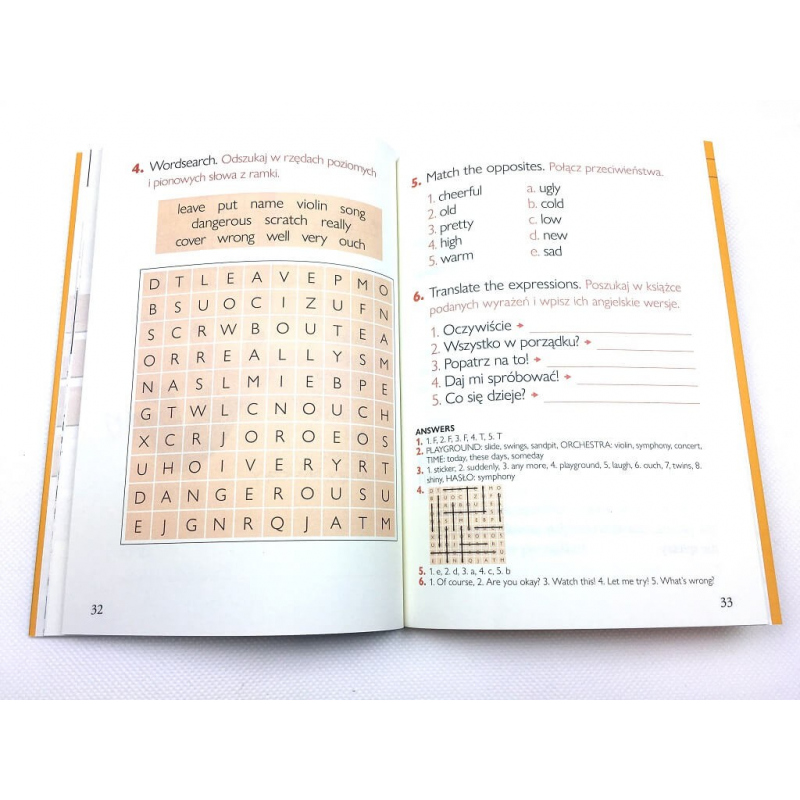 4. Wordsearch. Odszukaj w rzędach poziomych
i pionowych słowa z ramki.
leave put name violin song
dangerous scratch really
cover wrong well very ouch
D T L E A V E P M O
B S U O C I Z U F N
S C R W B O U T E A
O R R E A L L Y S M
N A S L M I E B P E
G T W L C N O U C H
X C R J O R O E O S
U H O I V E R Y R T
D A N G E R O U S U
E J G N R Q J A T M
32
5. Match the opposites. Połącz przeciwieństwa.
1. cheerful a. ugly
2. old b. cold
3. pretty c. low
4. high d. new
5. warm e. sad
6. Translate the expressions. Poszukaj w książce
podanych wyrażeń i wpisz ich angielskie wersje.
1. Oczywiście
2. Wszystko w porządku?
3. Popatrz na to!
4. Daj mi spróbować!
5. Co się dzieje?
ANSWERS
1. 1. F, 2. F, 3. F, 4. T, 5. T
2. PLAYGROUND: slide, swings, sandpit, ORCHESTRA: violin, symphony, concert,
TIME: today, these days, someday
3. 1. sticker, 2. suddenly, 3. any more, 4. playground, 5. laugh, 6. ouch, 7. twins, 8.
shiny, HASŁO: symphony
4.
5. 1. e, 2. d, 3. a, 4. c, 5. b
6. 1. Of course, 2. Are you okay? 3. Watch this! 4. Let me try! 5. What's wrong?
33